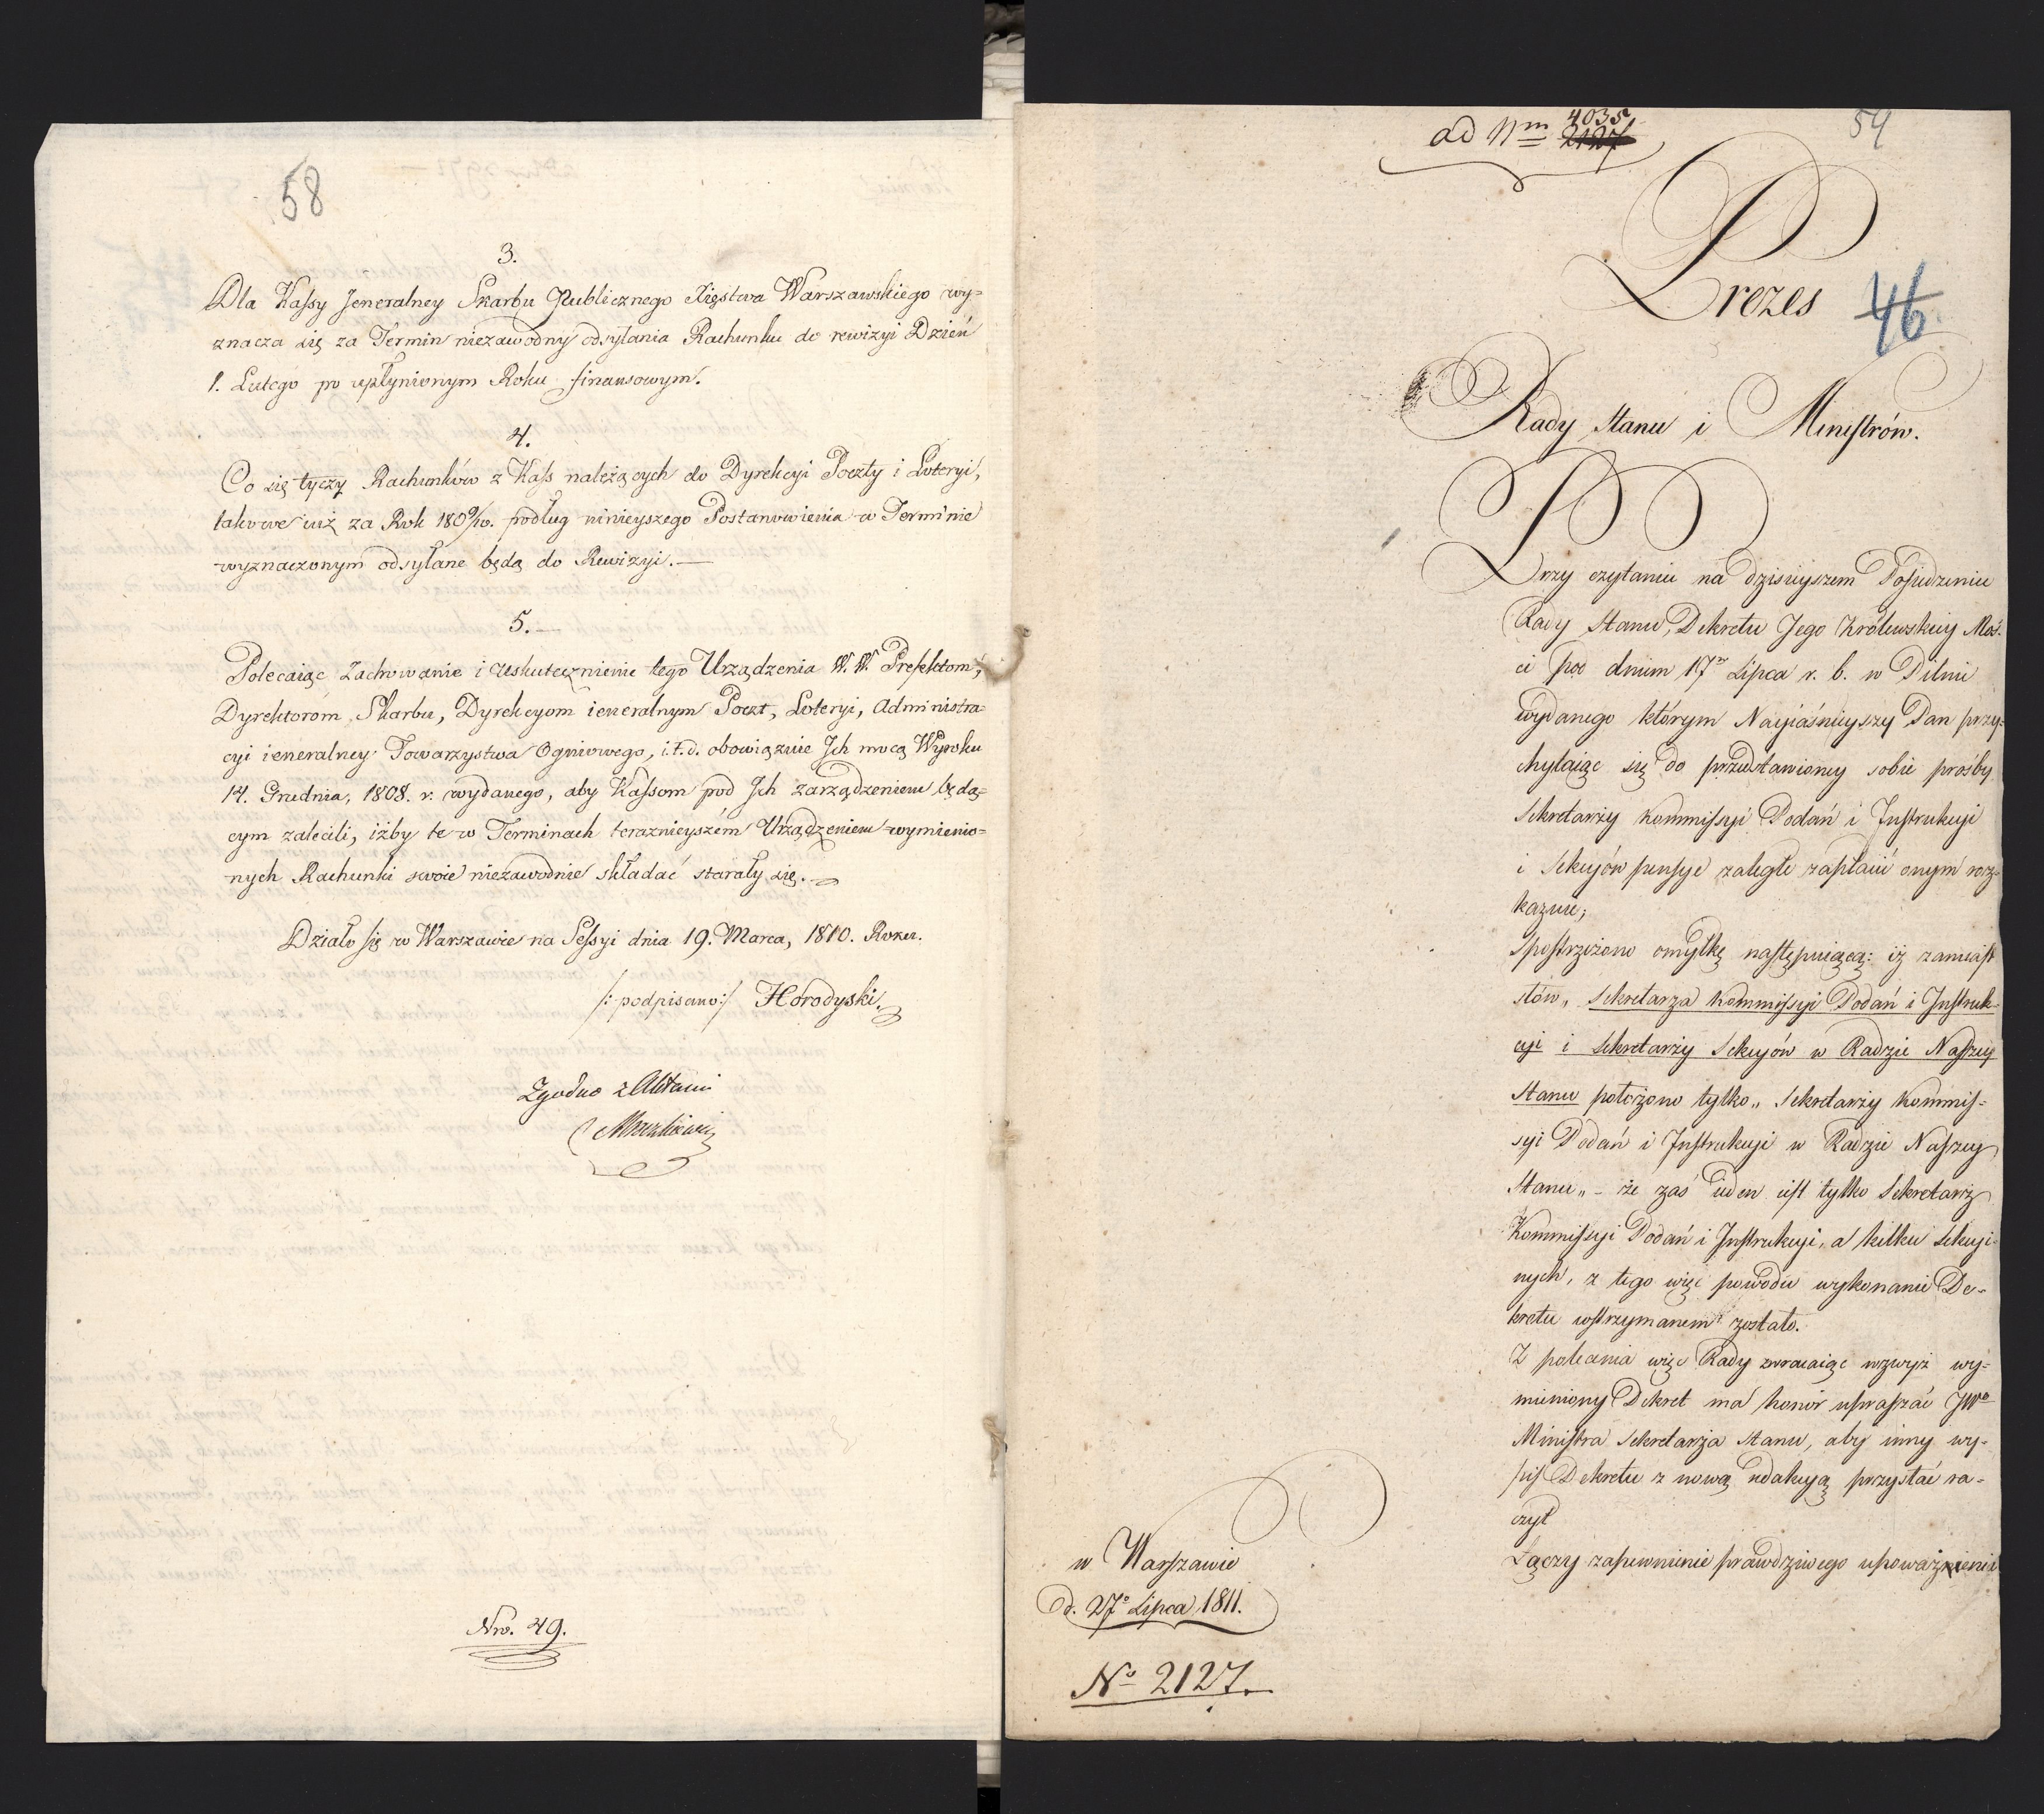 58
3.
Dla Kassy Jeneralney Skarbu Publicznego Xięstwa Warszawskiego wy=
znacza się za Termin niezawodny odsyłania Rachunku do rewizyi Dzień
1. Lutego po upłynionym Roku finansowym.
4.
Co się tyczy Rachunków z Kass należących do Dyrekcyi Poczty i Loteryi,
takowe iuż za Rok 1809/10. podług ninieyszego Postanowienia w Terminie
wyznaczonym odsyłane będą do Rewizyi.—
5.—
Polecaiąc Zachowanie i uskutecznienie tego Urządzenia W. W. Prefektom,
Dyrektorom Skarbu, Dyrekcyom ieneralnym Poczt, Loteryi, Administra=
cyi ieneralney Towarzystwa Ogniowego, i.t.d. obowiązuie Ich mocą Wyroku
14. Grudnia, 1808. r. wydanego, aby Kassom pod Ich zarządzeniem będą=
cym zalecili, iżby te w Terminach teraznieyszém Urządzeniem wymienio=
nych Rachunki swoie niezawodnie składać starały się.
Działo się w Warszawie na Sessyi dnia 19. Marca, 1810. Roku.
/: podpisano :/ Horodyski.
Zgodno z Aktami
Nro. 49.
ad Nm 4035
2127
54
Prezes
46
Rady Stanu i Ministrów.
Przy czytaniu na dzisieyszem Posiedzeniu
Rady Stanu, Dekretu Jego Królewskiey Moś=
ci pod dniem 17m Lipca r. b. w Pilni
wydanego którym Nayiaśnieyszy Pan przy=
chylaiąc się do przedstawioney sobie prośby
Sekretarzy Kommissyi Podań i Instrukcyi
i Sekcyów pensye zaległe zapłacić onym roz=
kazuie;
spostrzeżono omyłkę następuiącą: iż zamiast
słów, Sekretarza Kommissyi Podań i Instruk=
cyi i Sekretarzy Sekcyów w Radzie Naszey
Stanu położono tylko „ Sekretarzy Kommis=
syi Podań i Instrukcyi w Radzie Naszey
Stanu „ – że zaś ieden iest tylko Sekretarz
Kommissyi Podań i Instrukcyi, a kilku Sekcyi=
nych, z tego więc powodu wykonanie De=
kretu wstrzymanem zostało.
Z polecenia więc Rady zwracaiąc wzwyż wy=
mieniony Dekret ma honor upraszać JWo
Ministra Sekretarza Stanu, aby inny wy=
pis Dekretu z nową redakcyą przysłać ra=
czył
Łączy zapewnienie prawdziwego upoważnienia
w Warszawie
d. 27o Lipca 1811.
No 2127.